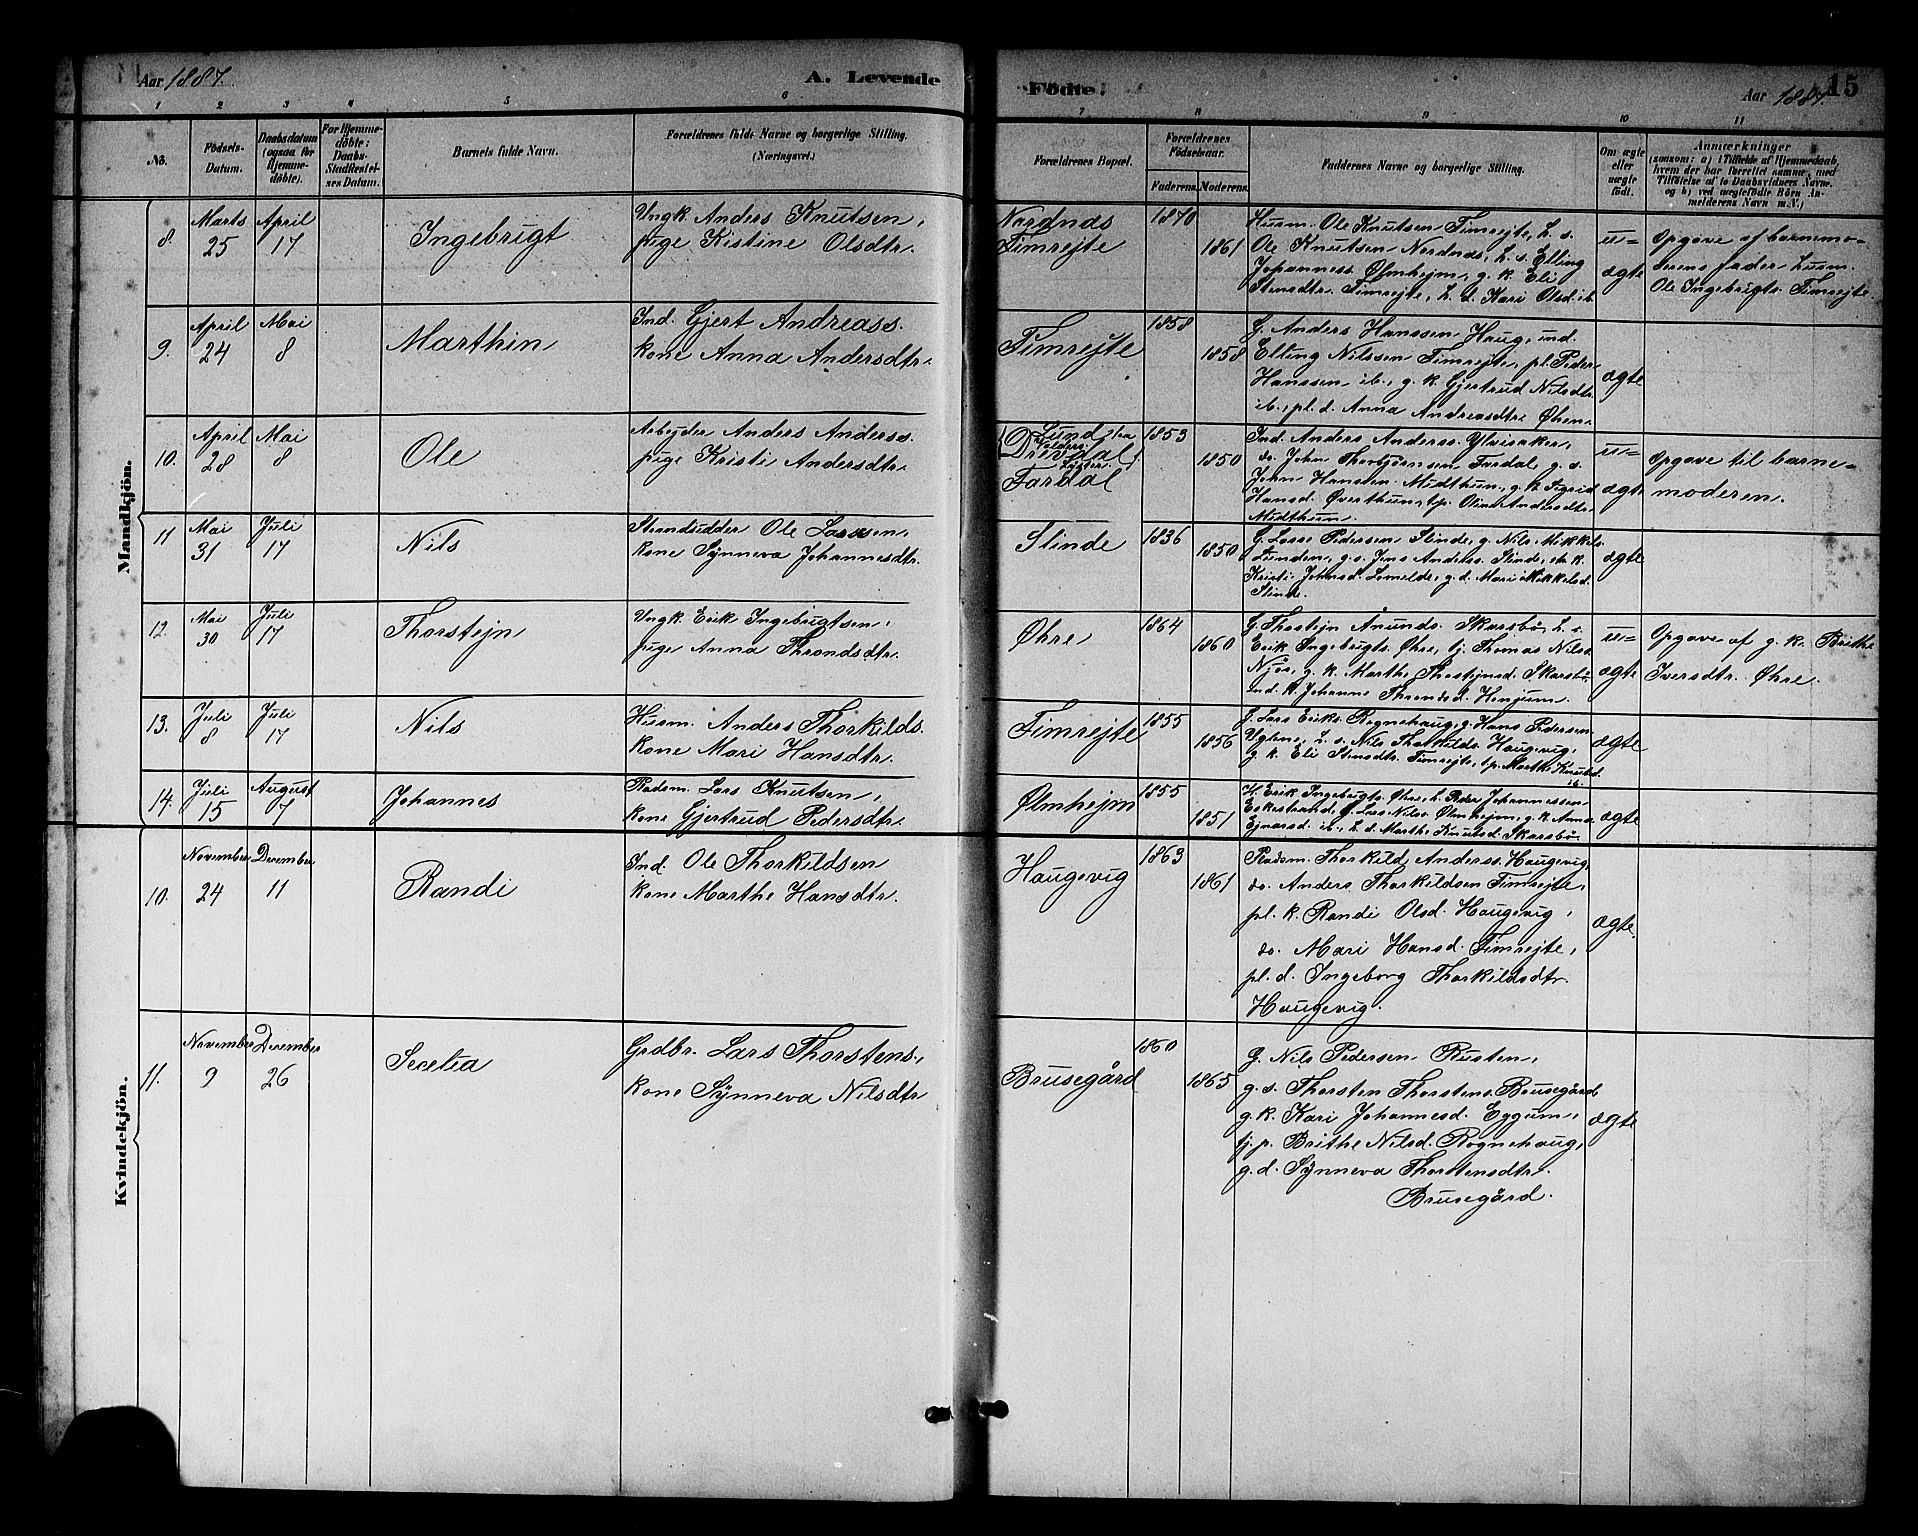 Aar 1887.
A. Levende
Födte.
Aar 1887.
15
1 2 3 4 5 6 7 8 9 10 11
No.
Födsels-
Datum.
Daabsdatum
(ogsaa for
Hjemme-
döbte).
For Hjemme-
döbte:
Daabs-
Stadfæstel-
ses Datum.
Barnets fulde Navn.
Forældrenes fulde Navne og borgerlige Stilling.
(Næringsvei.)
Forældrenes Bopæl.
Forældrenes
Födselsaar.
Faderens.
Moderens.
Faddernes Navne og borgerlige Stilling.
Om ægte
eller
uægte
födt.
Anmærkninger
(saasom: a) i Tilfælde af Hjemmedaab,
hvem der har forrettet samme, med
Tilföielse af to Daabsvidners Navne,
og b) ved uægtefödte Börn An-
melderens Navn m. V.)
Mandkjön.
8.
Marts
25
April
17
Ingebrigt
Ungk. Anders Knutsen,
pige Kistine Olsdtr.
Nordnæs
Fimrejte
1870
1861
Husm. Ole Knutsen Fimrejte, h. s.
Ole Knutsen Nordnæs, h. s. Elling
Johanness. Ølmhejm, g. k. Eli
Stensdtr. Fimrejte, h. d. Kari Olsd. ib.
u=
ægte
Opgave af barnemo-
derens fader husm.
Ole Ingebrigts. Fimrejte.
9.
April
24
Mai
8
Marthin
Ind. Gjert Andreass.
kone Anna Andersdtr.
Fimrejte
1858
1858
G. Anders Hanssen Haug, ind.
Elling Nilssen Fimrejte, pl. Peder
Hanssen ib., g. k. Gjertrud Nilsdtr.
ib., pl. d. Anna Andreasdtr Øhen.
ægte
10.
April
28
Mai
8
Ole
Arbejder Anders Anderss.
pige Kristi Andersdtr.
Lund fra
Drevdal
Fardal
1853
1850
Ind. Anders Anderss. Ylvisaker,
do. John Thorbjørnsen Fardal, g. s.
John Hanssen Midthun, g. k. Sigrid
Hansd. Øverthun, tp. Oline Andersdtr.
Midthun.
u=
ægte
Opgave til barne=
moderen.
11
Mai
31
Juli
17
Nils
Strandsidder Ole Larssen,
kone Synneva Johannesdtr.
Slinde
1836
1850
G. Lasse Pedersen Slinde, g. Nils Mikkels.
Lunden, g. s. Jens Anderss. Slinde, k.
Kristi Johnsd. Lomelde, g. d. Mari Mikkelsd.
Slinde.
ægte
12.
Mai
30
Juli
17
Thorstejn
Ungk. Erik Ingebrigtsen,
pige Anna Throndsdtr.
Øhre
1864
1860
G. Thorstejn Anunds. Skarsbø, h. s.
Erik Ingebrigts. Øhre, tj. Thomas Nilss.
Njøs, g. k. Marthe Thorstejnsd. Skarsbø,
ind. k. Johanne Throndsd. Henjum.
u=
ægte
Opgave af g. k. Brithe
Iversdtr. Øhre.
13.
Juli
8
Juli
17
Nils
Husm. Anders Thorkilds.
kone Mari Hansdtr.
Fimrejte
1855
1856
G. Lars Eriks. Rognehaug, g. Hans Pedersen
Uglene, h. s. Nils Thorkilds. Haugevig,
g. k. Eli Stensdtr. Fimrejte, tp. Marthe Knutsd.
ib.
ægte
14.
Juli
15
August
7
Johannes
Pladsm. Lars Knutsen,
kone Gjertrud Pedersdtr.
Ølmhejm
1855
1851
H. Erik Ingebrigts. Øhre, h. Peder Johannessen
Eskestrand, G. Lars Nilss. Ølmhejm, g. k. Anna
Ejnarsd. ib., h. d. Marthe Knutsd. Skarsbø.
ægte
Kvindekjön.
10.
November
24
December
11
Randi
Ind. Ole Thorkildsen
kone Marthe Hansdtr.
Haugevig
1863
1861
Pladsm. Thorkild Anderss. Haugevig,
do. Anders Thorkildsen Fimrejte,
pl. k. Randi Olsd. Haugevig,
do. Mari Hansd. Fimrejte,
pl. d. Ingeborg Thorkildsdtr.
Haugevig.
ægte.
11.
November
9
December
26
Secelia
Grdbr. Lars Thorstens.,
kone Synneva Nilsdtr
Brusegård
1860
1865
G. Nils Pedersen Rusten,
g. s. Thorsten Thorstens. Brusegård
g. k. Kari Johannesd. Eggum,
tj. p. Brithe Nilsd. Rognehaug,
g. d. Synneva Thorstensdtr.
Brusegård.
ægte